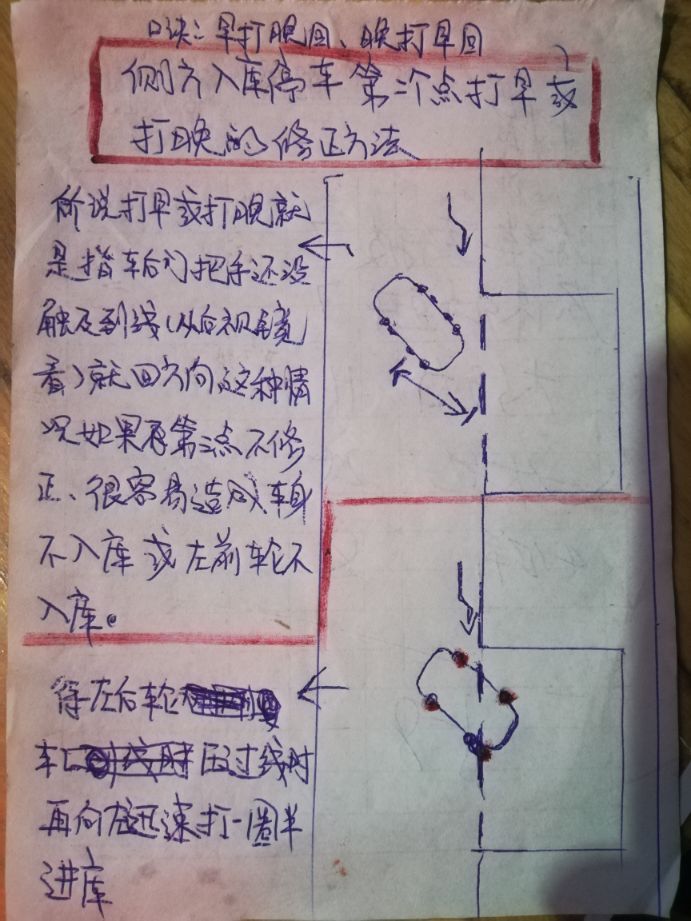 口诀:早打晚回、晚打早回
侧方入库停车第二个点打早或
打晚的修正方法
所说打早或打晚就
是指车后门把手还没
触及到线(从后视镜
看)就回方向,这种情
况如果再第二点不修
正、很容易造成车身
不入库或左前轮不
入库。
等左后轮
车 压过线时
再向左迅速打一圈半
进库